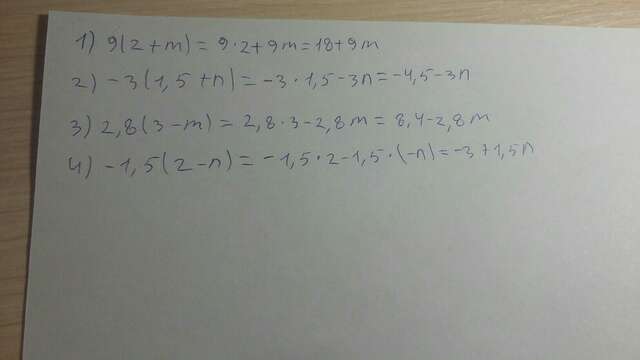 1) 9(2+m)= 9·2+9m=18+9m
2) -3(1,5+n)= -3·1,5-3n=-4,5-3n
3) 2,8(3-m) = 2,8·3-2,8m = 8,4-2,8m
4) -1,5(2-n)= -1,5·2-1,5·(-n)=-3+1,5n